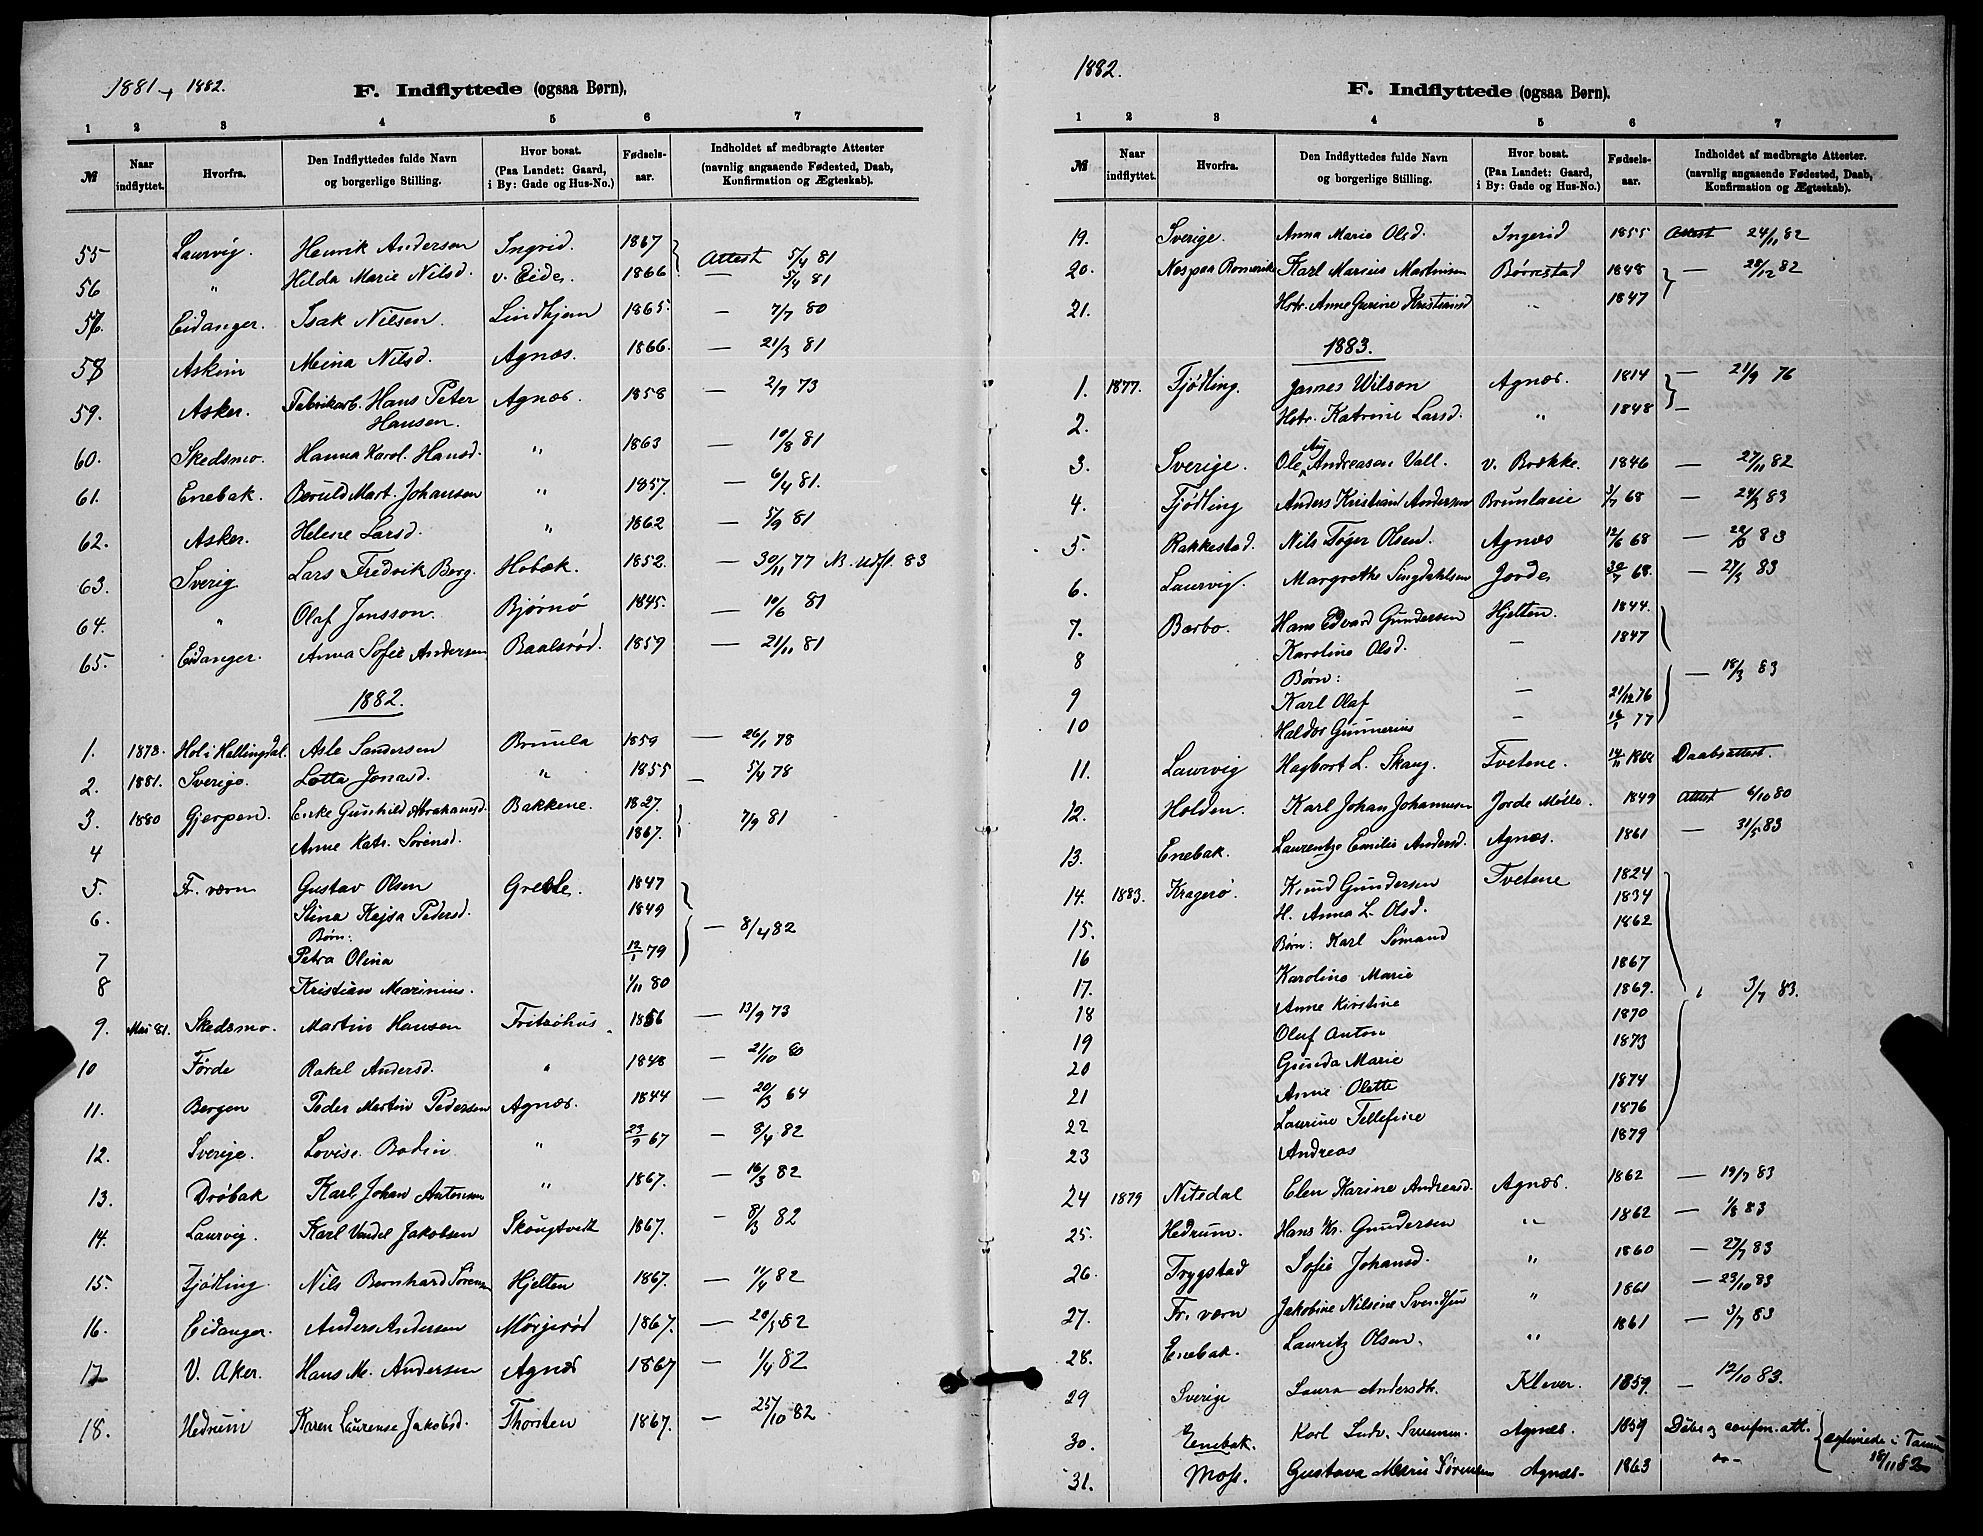 1881 + 1882.
F. Indflyttede (ogsaa Børn),
1 2 3 4 5 6 7
№ Naar indflyttet. Hvorfra. Den Indflyttedes fulde Navn og borgerlige Stilling. Hvor bosat. (Paa Landet: Gaard, i By: Gade og Hus-No.) Fødsels-aar. Indholdet af medbragte Attester (navnlig angaaende Fødested, Daab, Konfirmation og Ægteskab).
55 Laurvig Henrik Andersen Ingrid. 1867 Attest 5/4 81
56 " Hilda Marie Nilsd. v. Eide. 1866 — 5/4 81
57. Eidanger. Isak Nilsen. Lindhjem 1865. — 7/7 80
58 Askim Meina Nilsd. Agnæs. 1866. — 21/3 81
59. Asker. Fabrikarb. Hans Peter Hansen. Agnæs. 1858 — 2/7 73
60. Skedsmo. Hanna Karol. Hansd. " 1863 — 10/8 81
61. Enebak. Beruld Mart. Johansen " 1857. — 6/4 81.
62. Asker. Helene Larsd. " 1862 — 5/9 81
63. Sverig Lars Fredrik Berg. Hobæk. 1852. — 30/11 77 N. Udfl. 83
64. " Olaf Jonsson. Bjørnø 1845. — 10/6 81
65. Eidanger. Anna Sofie Andersen Baalsrød. 1859 — 21/11 81
1882.
1. 1878. Hol i Hallingdal. Asle Sandersen Brunla 1859 — 26/1 78
2. 1881. Sverige. Lotta Jonasd. " 1855 — 5/4 78
3. 1880 Gjerpen. Enke Gunhild Abrahamsd. Bakkene. 1827. 7/9 81
4 Anne Katr. Sørensd. 1867.
5. Fr. værn Gustav Olsen Grevle. 1847
6. Stina Kajsa Pedersd. 1849 — 8/4 82
Børn:
7 Petra Olina 12/1 79
8 Kristian Marinius. 1/11 80
9. Mai 81. Skedsmo. Martin Hansen Fritzøhus. 1856 — 13/9 73
10 Førde Rakel Andersd. " 1848 — 21/10 80
11. Bergen Peder Martin Pedersen Agnæs. 1844 — 20/3 64
12. Sverige. Lovise Bodin " 23/9 67 — 8/4 82
13. Drøbak Karl Johan Antonsen " 1867. — 16/3 82
14. Laurvig. Karl Vandel Jakobsen Skougtvedt 1867. — 8/3 82
15. Tjødling. Nils Bernhard Sørens Hjelten 1867. — 11/4 82
16. Eidanger. Anders Andersen Mørjerød 1867. — 20/5 82
17 V. Aker. Hans M. Andersen Agnæs 1867 — 1/4 82
18. Hedrum Karen Laurense Jakobsd. Thorsten 1867. — 25/10 82
1882.
F. Indflyttede (ogsaa Børn).
1 2 3 4 5 6 7
№ Naar indflyttet. Hvorfra. Den Indflyttedes fulde Navn og borgerlige Stilling. Hvor bosat. (Paa Landet: Gaard, i By: Gade og Hus-No.) Fødsels-aar. Indholdet af medbragte Attester. (navnlig angaaende Fødested, Daab, Konfirmation og Ægteskab).
19. Sverige. Anna Marie Olsd. Ingerid 1855 Attest 24/11 82
20. Næs paa Romerike Karl Marius Martinsen Børrestad 1848 — 28/12 82
21. Hstr. Anne Gurine Kristensd " 1847
1883.
1. 1877. Tjødling. James Wilson Agnæs. 1814 — 21/9 76
2. Hstr. Katrine Larsd. " 1848 —
3. Sverige. Ole Aug Andreasen Vall. v. Brække. 1846 — 27/11 82
4. Tjødling Anders Kristian Andersen Brunlanæ 3/7 68 — 24/3 83
5. Rakkestad. Nils Toger Olsen. Agnæs 12/6 68 — 22/3 83
6. Laurvig. Margrethe Singdahlsen Jorde 30/7 68. — 27/3 83
7. Barbo. Hans Edvard Gundersen Hjelten. 1844.
8 Karoline Olsd. — 1847
Børn: — 18/3 83
9 Karl Olaf — 21/12 76
10 Haldor Gunnerius — 16/1 77
11. Laurvig Hagbart L. Skaug. Tvetene. 14/11 1864 Daabsattest.
12. Holden. Karl Johan Johannesen Jorde Mølle. 1849 Attest 6/10 80
13. Enebak. Laurentze Emilie Andersd. Agnæs. 1861 — 31/5 83
14. 1883. Kragerø. Knud Gundersen Tvetene 1824
15. H. Anna L. Olsd. 1834
16 Børn: Karl Sømand 1862
17. Karoline Marie 1867
18 Anne Kirstine 1869. " 3/7 83.
19 Oluf Anton 1870
20 Gunda Marie 1873
21 Anne Olette 1874
22 Laurine Tellefine 1876
23 Andreas 1879
24 1879 Nitsdal Elen Karine Andreasd. Agnæs. 1862 — 19/7 83
25. Hedrum. Hans Kr. Gundersen " 1862 — 1/8 83
26. Trygstad Sofie Johansd. " 1860 — 27/7 83
27. Fr. værn Jakobine Nilsine Svendsen " 1861 — 23/10 83
28. Enebak. Lauritz Olsen. " 1861 — 3/7 83
29 Sverige Laura Andersdtr. Klever. 1859. — 12/10 83.
30. Enebak. Karl Ludv. Agnæs. 1859 Døbe og confirm. att. ægteviede i Tanum
31. Moss. Gustava Marie Sørensen Agnæs. 1863 do - 18/11 82